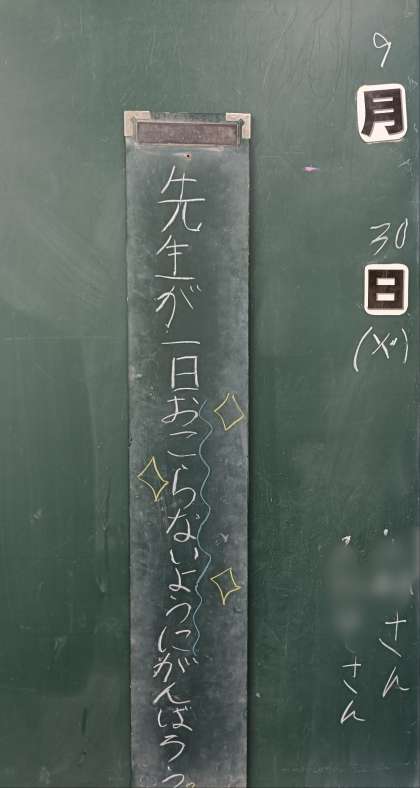 9月30日(火)
さん
さん
先生が一日おこらないようにがんばろう。